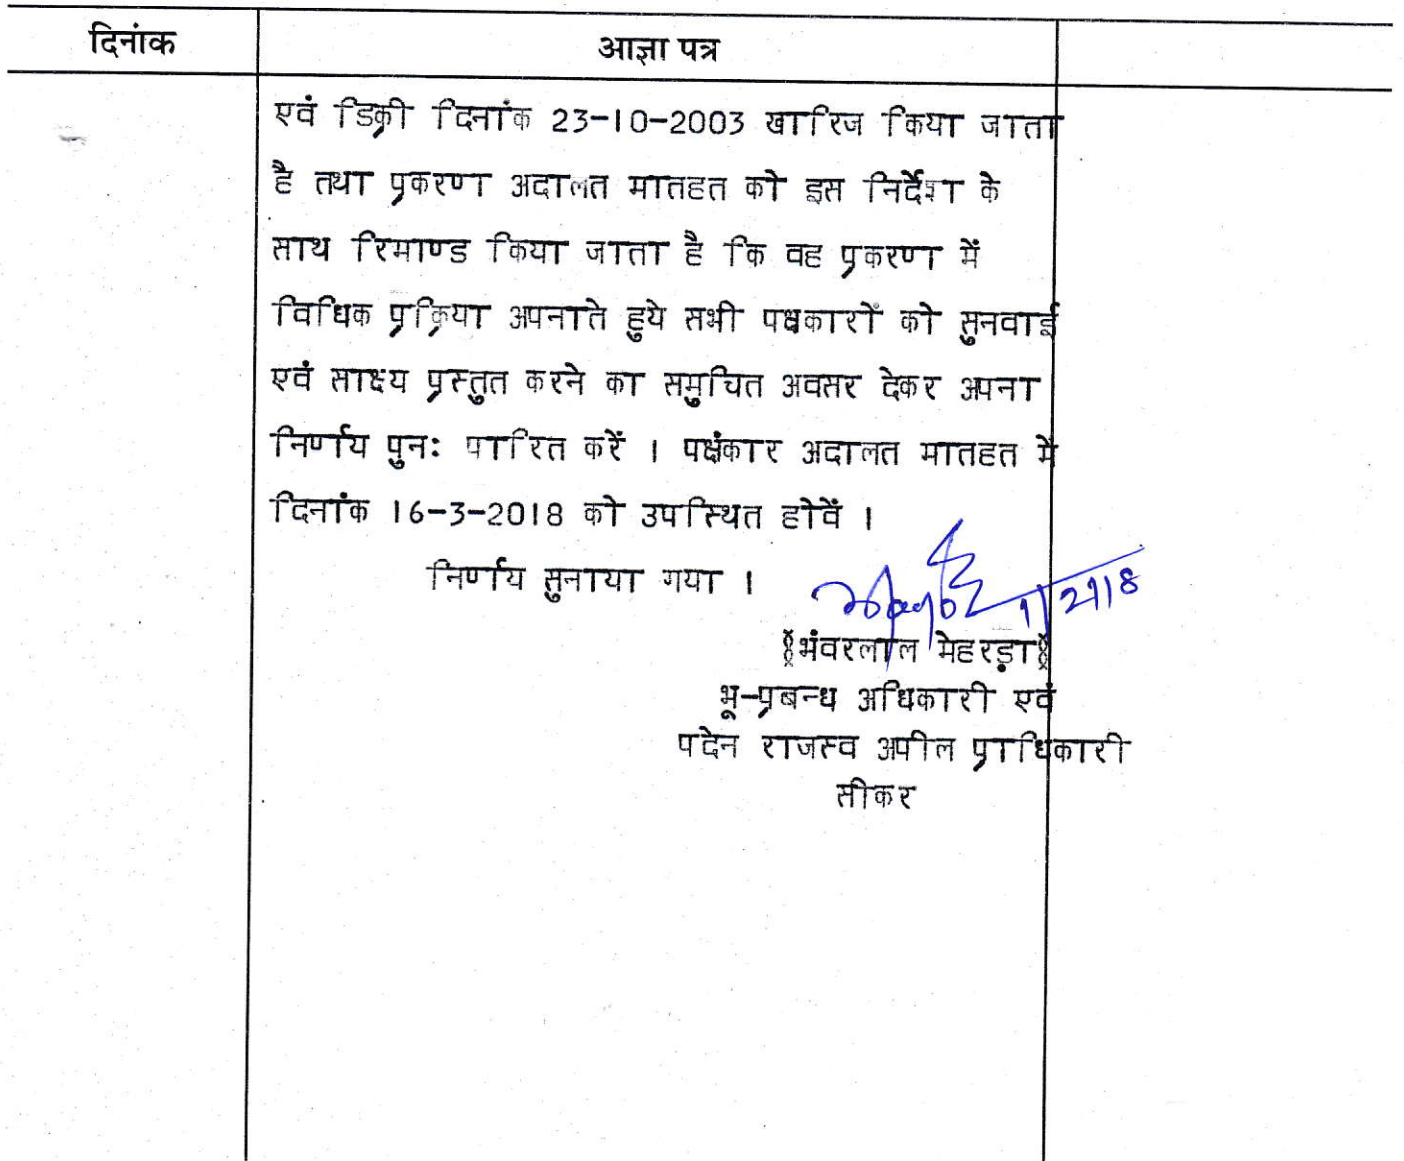 दिनांक
आज्ञा पत्र
एवं डिक्री दिनांक 23-10-2003 खारिज किया जाता
है तथा प्रकरण अदालत मातहत को इस निर्देश के
साथ रिमाण्ड किया जाता है कि वह प्रकरण में
विधिक प्रक्रिया अपनाते हुये सभी पक्षकारों को सुनवाई
एवं साक्ष्य प्रस्तुत करने का समुचित अवसर देकर अपना
निर्णय पुनः पारित करें । पक्षंकार अदालत मातहत में
दिनांक 16-3-2018 को उपस्थित होवें ।
निर्णय सुनाया गया ।
(भंवरलाल मेहरड़ा)
भू-प्रबन्ध अधिकारी एवं
पदेन राजस्व अपील प्राधिकारी
सीकर